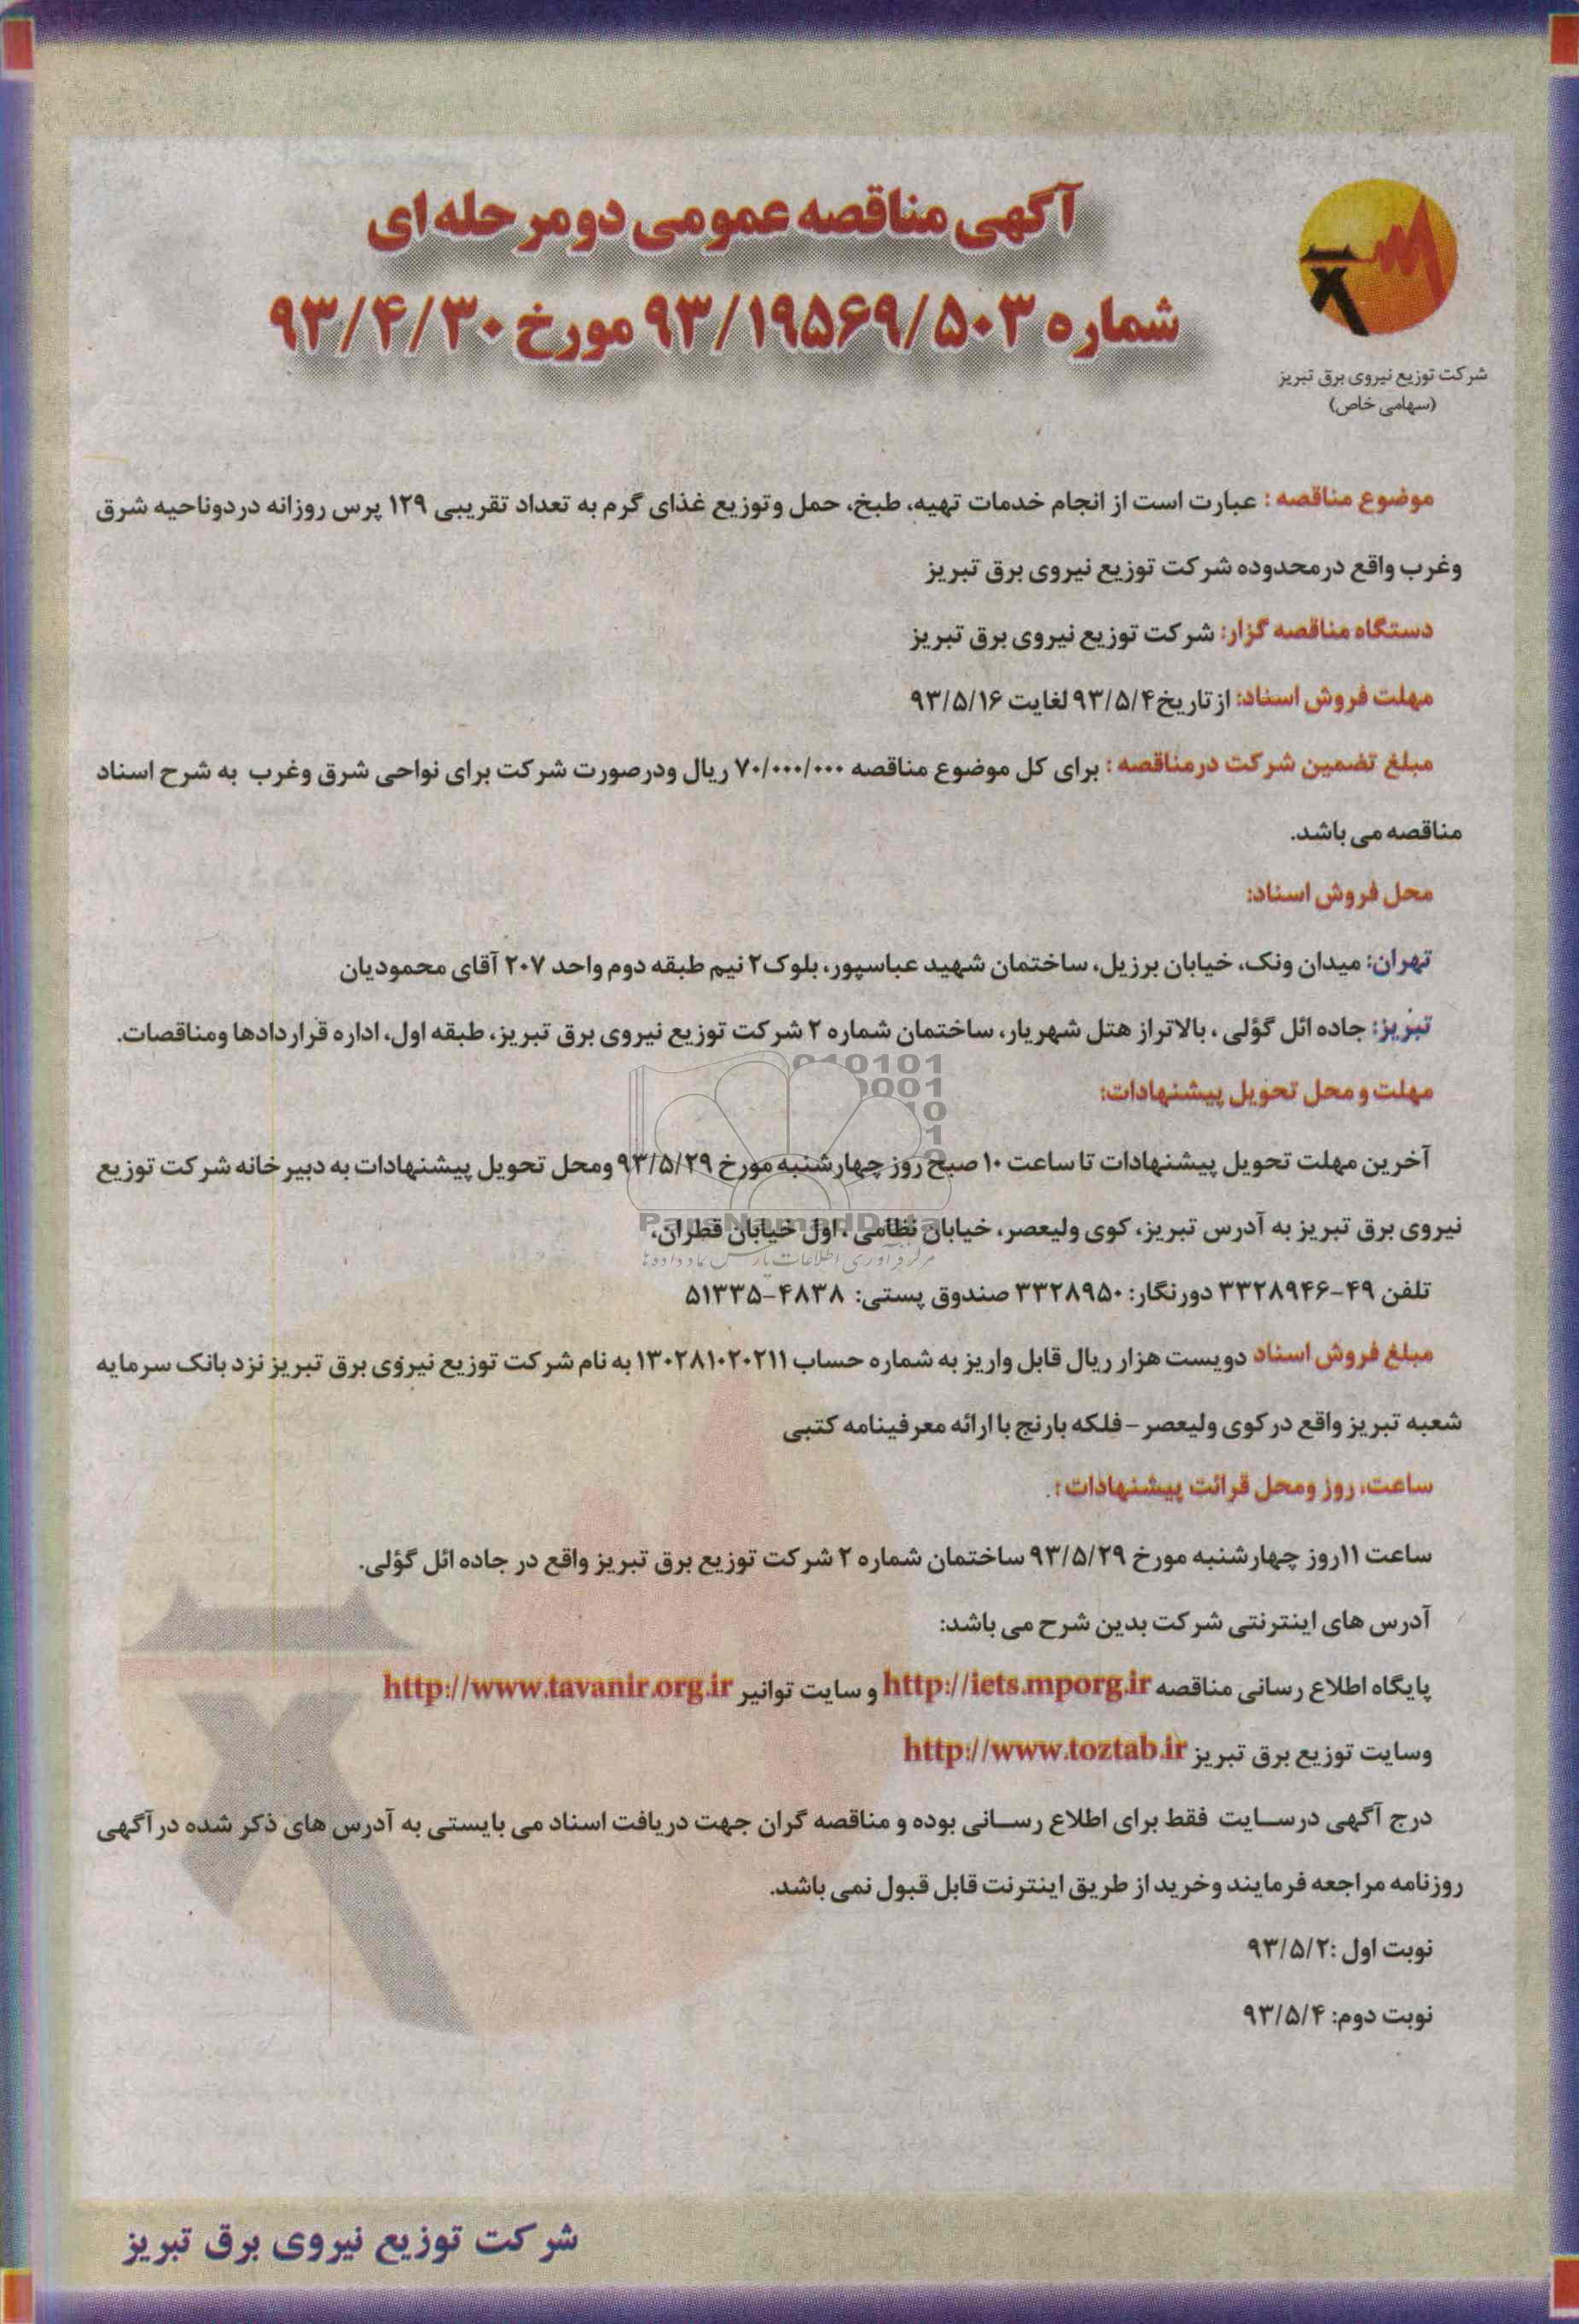 آگهی مناقصه عمومی دومرحله ای
شماره ۹۳/۱۹۵۶۹/۵۰۳ مورخ ۹۳/۴/۳۰
شرکت توزیع نیروی برق تبریز
(سهامی خاص)
موضوع مناقصه : عبارت است از انجام خدمات تهیه، طبخ، حمل وتوزیع غذای گرم به تعداد تقریبی ۱۲۹ پرس روزانه دردوناحیه شرق
وغرب واقع درمحدوده شرکت توزیع نیروی برق تبریز
دستگاه مناقصه گزار: شرکت توزیع نیروی برق تبریز
مهلت فروش اسناد: ازتاریخ ۹۳/۵/۴ لغایت ۹۳/۵/۱۶
مبلغ تضمین شرکت درمناقصه : برای کل موضوع مناقصه ۷۰/۰۰۰/۰۰۰ ریال ودرصورت شرکت برای نواحی شرق وغرب به شرح اسناد
مناقصه می باشد.
محل فروش اسناد:
تهران: میدان ونک، خیابان برزیل، ساختمان شهید عباسپور، بلوک۲ نیم طبقه دوم واحد ۲۰۷ آقای محمودیان
تبریز: جاده ائل گؤلی ، بالاتراز هتل شهریار، ساختمان شماره ۲ شرکت توزیع نیروی برق تبریز، طبقه اول، اداره قراردادها ومناقصات.
مهلت و محل تحویل پیشنهادات:
آخرین مهلت تحویل پیشنهادات تا ساعت ۱۰ صبح روز چهارشنبه مورخ ۹۳/۵/۲۹ ومحل تحویل پیشنهادات به دبیرخانه شرکت توزیع
نیروی برق تبریز به آدرس تبریز، کوی ولیعصر، خیابان نظامی ، اول خیابان قطران،
تلفن ۴۹-۳۳۲۸۹۴۶ دورنگار: ۳۳۲۸۹۵۰ صندوق پستی: ۴۸۳۸-۵۱۳۳۵
مبلغ فروش اسناد دویست هزار ریال قابل واریز به شماره حساب ۱۳۰۲۸۱۰۲۰۲۱۱ به نام شرکت توزیع نیروی برق تبریز نزد بانک سرمایه
شعبه تبریز واقع در کوی ولیعصر - فلکه بارنج با ارائه معرفینامه کتبی
ساعت، روز ومحل قرائت پیشنهادات :
ساعت ۱۱روز چهارشنبه مورخ ۹۳/۵/۲۹ ساختمان شماره ۲ شرکت توزیع برق تبریز واقع در جاده ائل گؤلی.
آدرس های اینترنتی شرکت بدین شرح می باشد:
پایگاه اطلاع رسانی مناقصه http://iets.mporg.ir و سایت توانیر http://www.tavanir.org.ir
وسایت توزیع برق تبریز http://www.toztab.ir
درج آگهی درسایت فقط برای اطلاع رسانی بوده و مناقصه گران جهت دریافت اسناد می بایستی به آدرس های ذکر شده درآگهی
روزنامه مراجعه فرمایند وخرید از طریق اینترنت قابل قبول نمی باشد.
نوبت اول :۹۳/۵/۲
نوبت دوم: ۹۳/۵/۴
شرکت توزیع نیروی برق تبریز
ParsNamadData
مرکز فرآوری اطلاعات پارس نماد داده ها